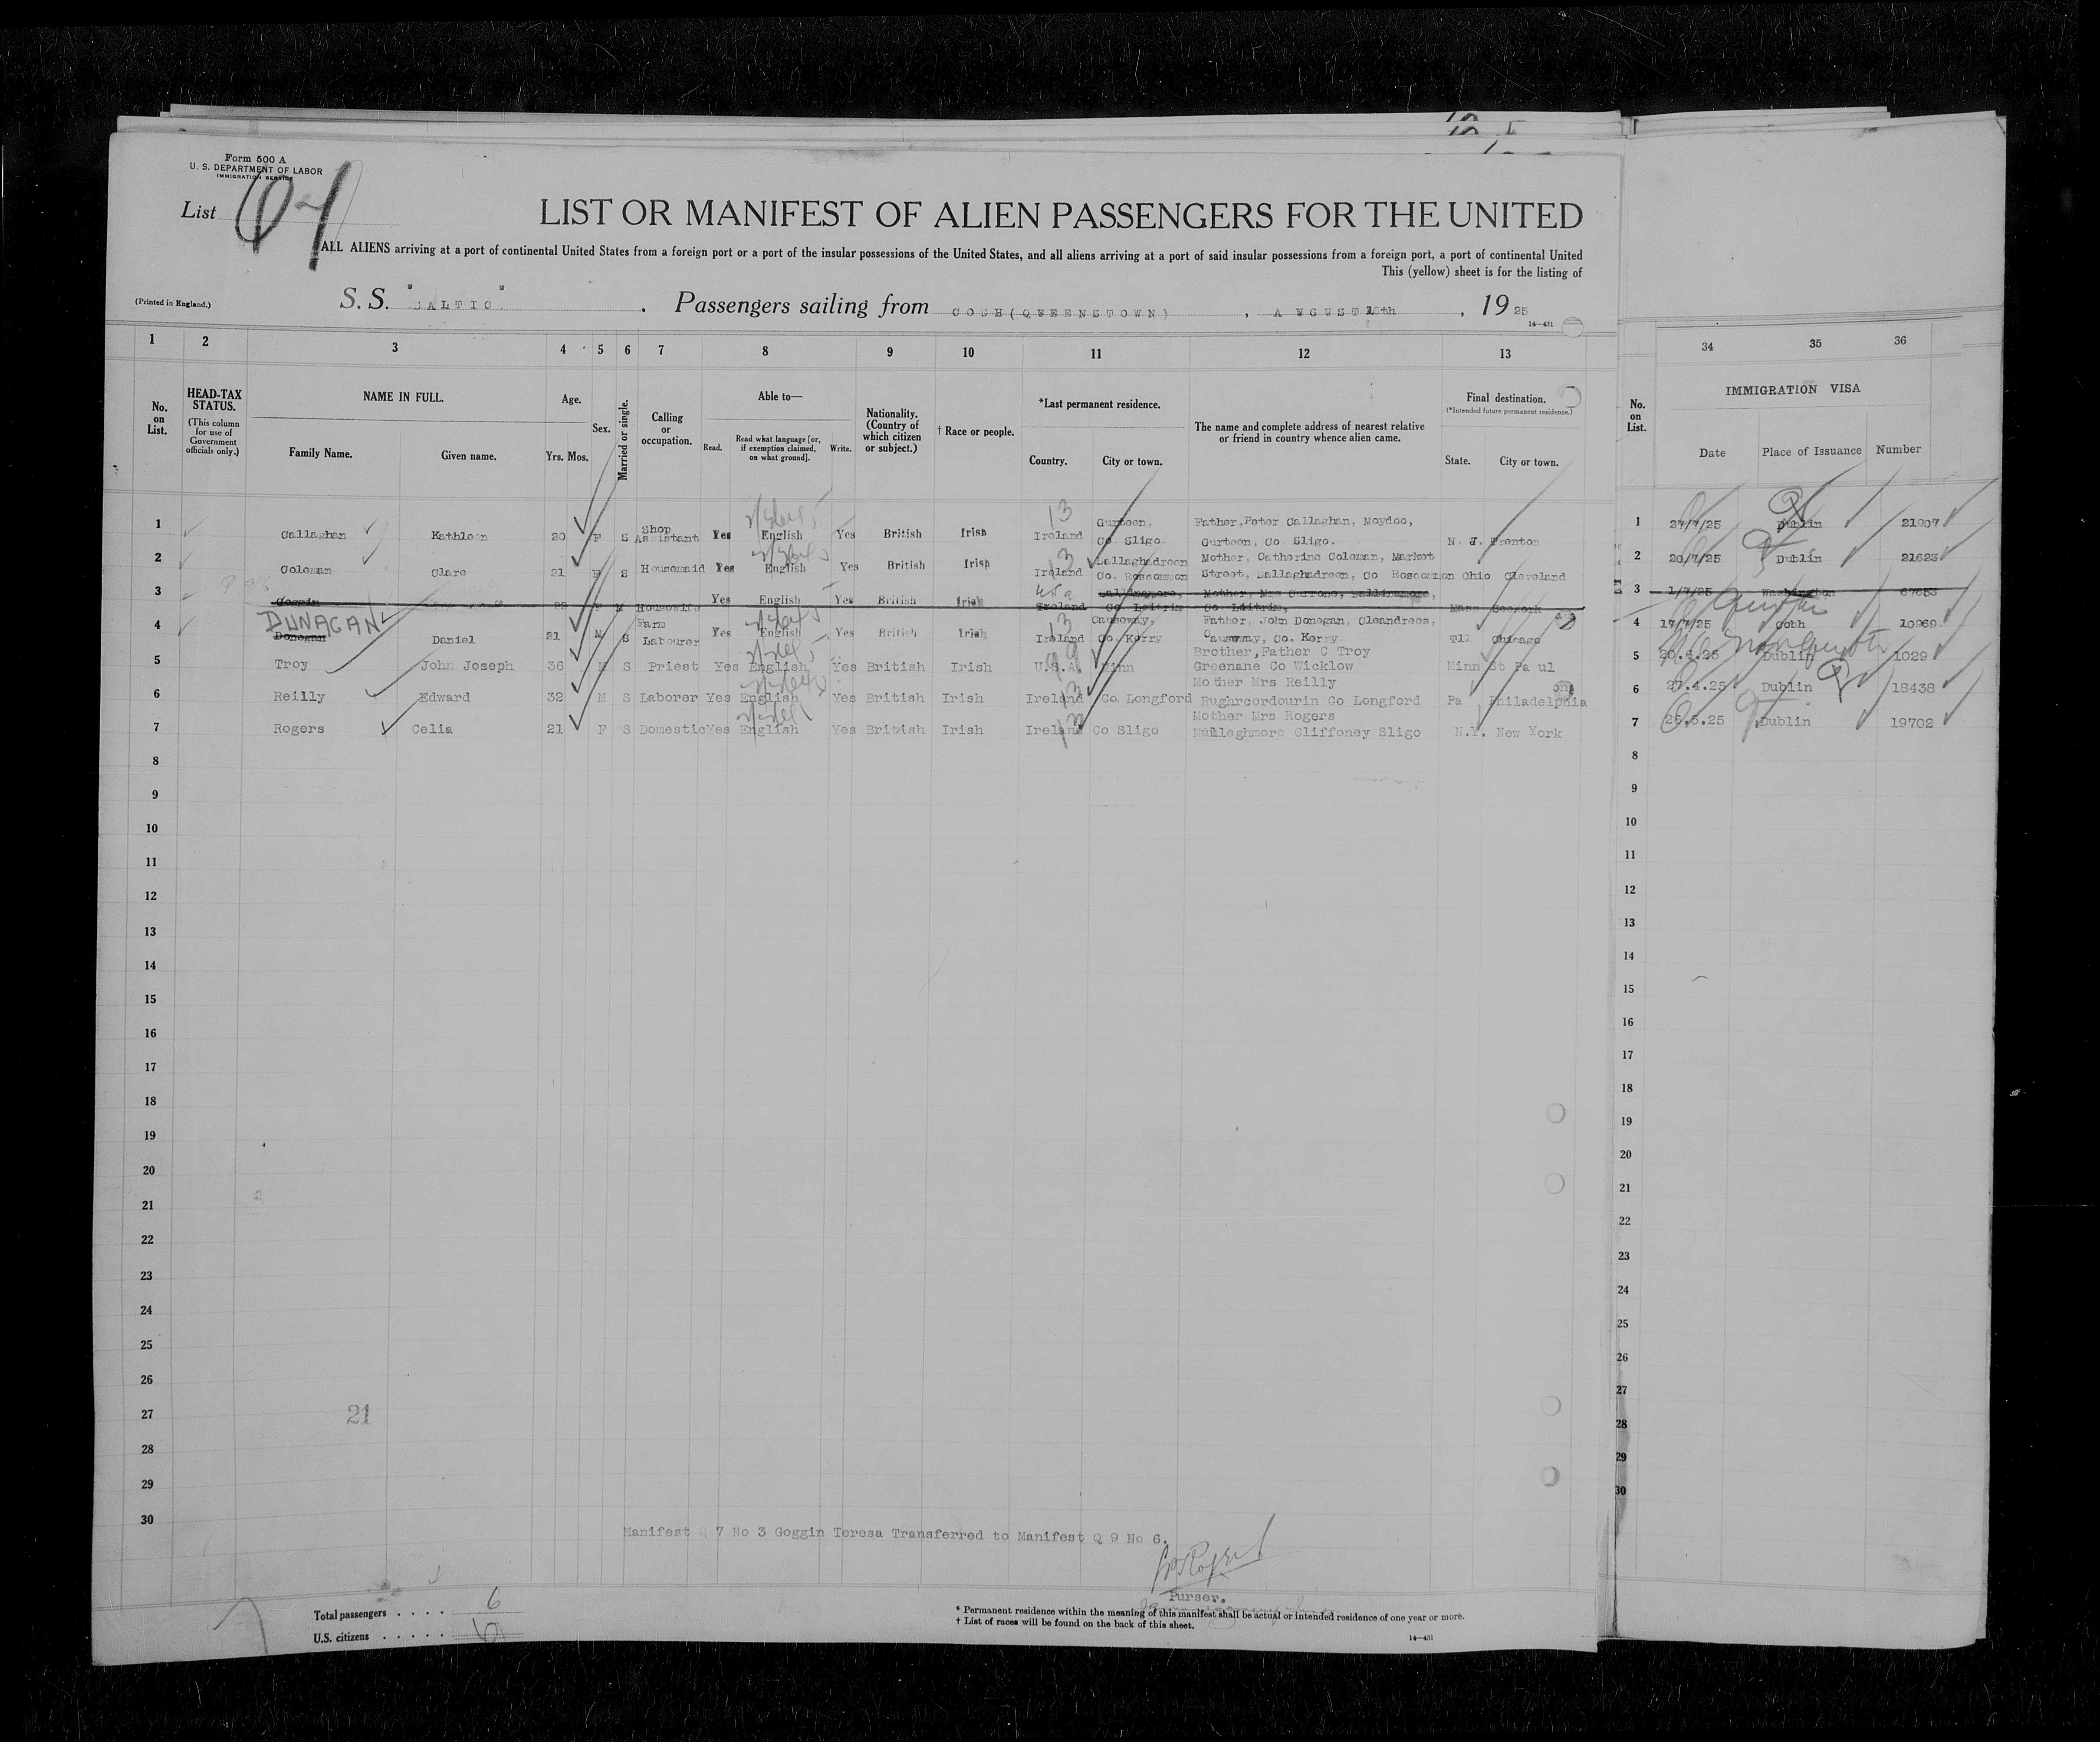 Form 500 A
U. S. DEPARTMENT OF LABOR
IMMIGRATION SERVICE
List
LIST OR MANIFEST OF ALIEN PASSENGERS FOR THE UNITED
ALL ALIENS arriving at a port of continental United States from a foreign port or a port of the insular possessions of the United States, and all aliens arriving at a port of said insular possessions from a foreign port, a port of continental United
This (yellow) sheet is for the listing of
(Printed in England.)
S. S. "BALTIC" . Passengers sailing from COBH(QUEENSTOWN) , AUGUST , 19 25
14—431
1 2 3 4 5 6 7 8 9 10 11 12 13 34 35 36
No. on List.
HEAD-TAX STATUS.
(This column for use of Government officials only.)
NAME IN FULL.
Family Name. Given name.
Age.
Yrs. Mos.
Sex.
Married or single.
Calling or occupation.
Able to—
Read. Read what language [or, if exemption claimed, on what ground]. Write.
Nationality. (Country of which citizen or subject.)
† Race or people.
*Last permanent residence.
Country. City or town.
The name and complete address of nearest relative or friend in country whence alien came.
Final destination.
(*Intended future permanent residence.)
State. City or town.
No. on List.
IMMIGRATION VISA
Date Place of Issuance Number
1 Callaghan Kathleen 20 F S Shop Assistant Yes English Yes British Irish 13 Ireland Gurteen, Co. Sligo Father, Peter Callaghan, Moydoo, Gurteen, Co Sligo. N. J. Trenton 1 27/7/25 Dublin 21907
2 Coleman Clare 21 F S Housemaid Yes English Yes British Irish 13 Ireland Ballaghadreen Co. Roscommon Mother, Catherine Coleman, Market Street, Ballaghadreen, Co Roscommon Ohio Cleveland 2 20/7/25 Dublin 21623
3 Goggin F M Housewife Yes English Yes British Irish Ireland Ballinamore, Co. Leitrim Mother, Mrs Currone, Ballinamore, Co. Leitrim, Mass 3 1/7/25 Washington
4 DUNAGAN Donegan Daniel 21 M S Farm Labourer Yes English Yes British Irish 13 Ireland Causeway, Co. Kerry Father, John Donegan, Cleandrees, Causeway, Co. Kerry Ill Chicago 4 17/7/25 Cobh 10969
5 Troy John Joseph 36 M S Priest Yes English Yes British Irish U.S.A. Minn Brother, Father C Troy Greenane Co Wicklow Minn St Paul 5 20.6.25 Dublin 1029
6 Reilly Edward 32 M S Laborer Yes English Yes British Irish 13 Ireland Co Longford Mother Mrs Reilly Rughreordourin Co Longford Pa Philadelphia 6 27.4.25 Dublin 18438
7 Rogers Celia 21 F S Domestic Yes English Yes British Irish Ireland Co Sligo Mother Mrs Rogers Mullaghmore Cliffoney Sligo N.Y. New York 7 26.5.25 Dublin 19702
8 8
9 9
10 10
11 11
12 12
13 13
14 14
15 15
16 16
17 17
18 18
19 19
20 20
21 21
22 22
23 23
24 24
25 25
26 26
27 21 27
28 28
29 29
30 30
Manifest Q 7 No 3 Goggin Teresa Transferred to Manifest Q 9 No 6.
Purser.
Total passengers . . . . 6
U.S. citizens . . . . .
* Permanent residence within the meaning of this manifest shall be actual or intended residence of one year or more.
† List of races will be found on the back of this sheet.
14—431